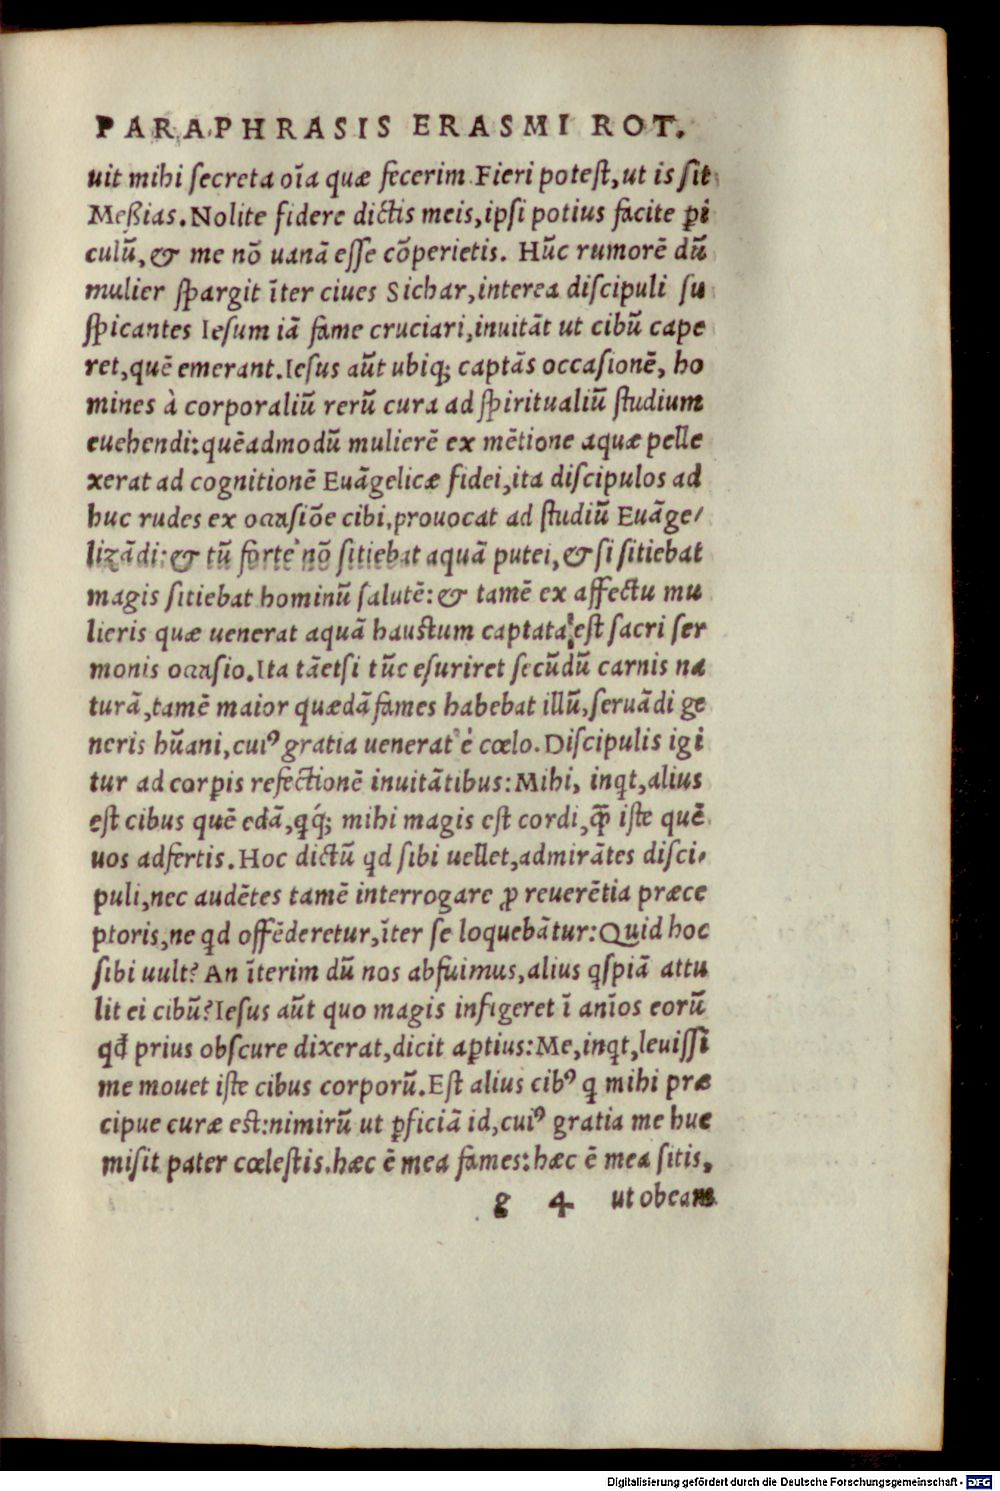 PARAPHRASIS ERASMI ROT.
uit mihi secreta oĩa quæ fecerim. Fieri potest, ut is sit
Meßias. Nolite fidere dictis meis, ipsi potius facite ꝑi
culũ, & me nõ uanã esse cõperietis. Hũc rumorẽ dũ
mulier spargit ĩter ciues Sichar, interea discipuli su
spicantes Iesum iã fame cruciari, inuitãt ut cibũ cape
ret, quẽ emerant. Iesus aũt ubiqꝫ captãs occasionẽ, ho
mines à corporaliũ rerũ cura ad spiritualiũ studium
euehendi: quẽadmodũ mulierẽ ex mẽtione aquæ pelle
xerat ad cognitionẽ Euãgelicæ fidei, ita discipulos ad
huc rudes ex occasiõe cibi, prouocat ad studiũ Euãge/
lizãdi: & tũ forte nõ sitiebat aquã putei, & si sitiebat
magis sitiebat hominũ salutẽ: & tamẽ ex affectu mu
lieris quæ uenerat aquã haustum captata est sacri ser
monis occasio. Ita tãetsi tũc esuriret secũdũ carnis na
turã, tamẽ maior quædã fames habebat illũ, seruãdi ge
neris hũani, cuiꝰ gratia uenerat è cœlo. Discipulis igi
tur ad corꝑis refectionẽ inuitãtibus: Mihi, inqt, alius
est cibus quẽ edã, qq́ꝫ mihi magis est cordi, q̃ꝫ iste quẽ
uos adfertis. Hoc dictũ qd sibi uellet, admirãtes disci/
puli, nec audẽtes tamẽ interrogare ꝓ reuerẽtia præce
ptoris, ne qd offẽderetur, ĩter se loquebãtur: Quid hoc
sibi uult? An ĩterim dũ nos abfuimus, alius qspiã attu
lit ei cibũ? Iesus aũt quo magis infigeret ĩ anĩos eorũ
qđ prius obscure dixerat, dicit aꝑtius: Me, inqt, leuissi
me mouet iste cibus corporũ. Est alius cibꝰ q mihi præ
cipue curæ est: nimirũ ut ꝑficiã id, cuiꝰ gratia me huc
misit pater cœlestis. hæc ẽ mea fames: hæc ẽ mea sitis,
g 4 ut obeam
Digitalisierung gefördert durch die Deutsche Forschungsgemeinschaft - DFG